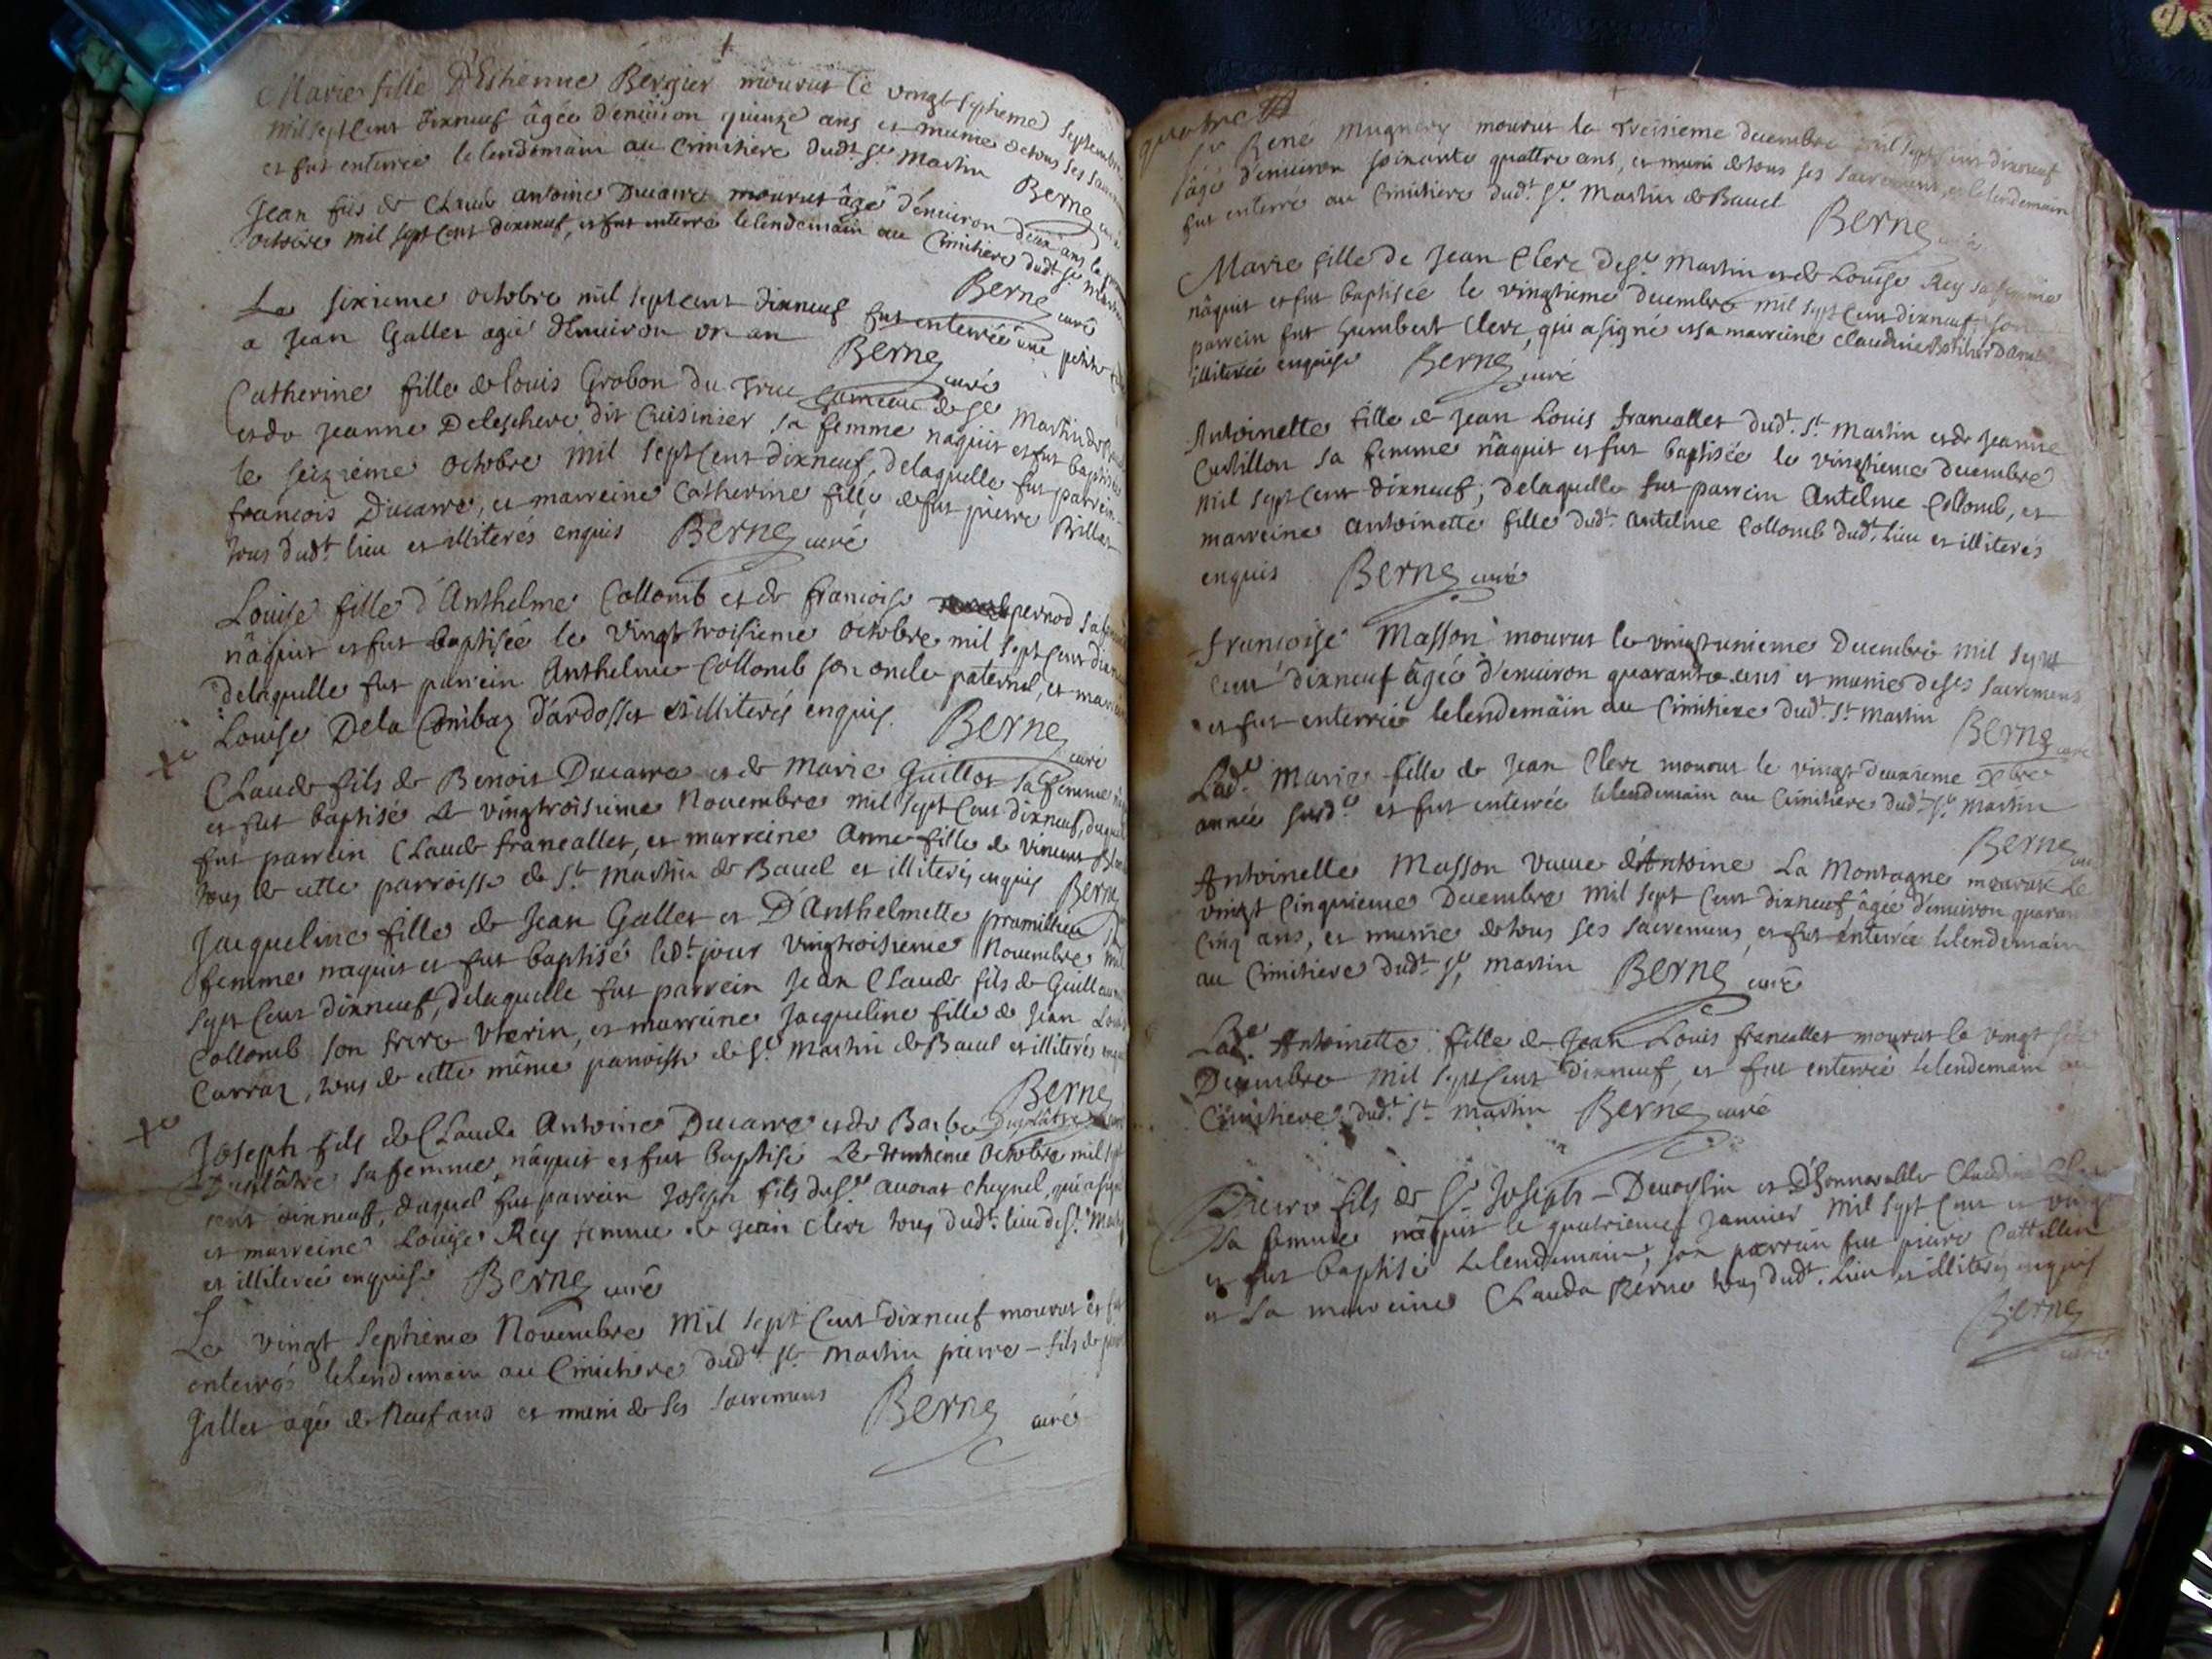 Marie fille D'Estienne Bergier mourut le vingt septieme septembre
mil sept cent dixneuf âgée d'enuiron quinze ans et munie de tous ses sacre
et fut enterrée le lendemain au Cimitiere dudt. St. Martin Berne curé
Jean fils de Claude antoine Ducarre mourut âgé d'enuiron deux ans le
octobre mil sept cent dixneuf, et fut enterré le lendemain au Cimitiere dudt St. Martin
Berne curé
Le sixieme octobre mil sept cent dixneuf fut enterrée une petite
a Jean Gallet agée d'enuiron vn an Berne curé
Catherine fille de louis Grobon du Truc hameau de St Martin de
et de Jeanne Deleschere dit Cuisinier sa femme naquit et fut baptisée
le seizieme octobre mil sept cent dixneuf, delaquelle fut parrein
francois Ducarre, et marreine Catherine fille de fut pierre Billet
tous dudt lieu et illiterés enquis Berne curé
Louise fille d'Anthelme Collomb et de francoise pernod sa femme
nâquit et fut baptisée le vingt troisieme octobre mil sept cent dixneuf
delaquelle fut parrein Anthelme Collomb son oncle paternel, et marreine
Louise Dela Combaz d'ardosset et illiterés enquis. Berne curé
Claude fils de Benoit Ducarre et de Marie Guillot sa femme
et fut baptisé Le vingtroisieme Nouembre mil sept cent dixneuf, duquel
fut parrein Claude francallet, et marreine Anne fille de vincent
tous de cette parroisse de St. Martin de Bauel et illiterés enquis Berne
Jacqueline fille de Jean Gallet et D'Anthelmette pramillieu sa
femme naquit et fut baptisé ledt. jour vingtroisieme Nouembre mil
sept cent dixneuf, delaquelle fut parrein Jean Claude fils de Guillaume
Collomb son frere vterin, et marreine Jacqueline fille de Jean Louis
Carraz, tous de cette même parroisse de St. Martin de Bauel et illiterés
Berne
Joseph fils de Claude Antoine Ducarre et de Barbe Duplâtre
Duplâtre sa femme nâquit et fut baptisé Le trentieme octobre mil sept
cent dixneuf, duquel fut parrein Joseph fils du Sr. auocat Cheynel, qui a signé
et marreine Louise Rey femme de Jean Clerc tous dudt. lieu de St. Martin
et illiterée enquise Berne curé
Le vingt septieme Nouembre Mil sept cent dixneuf mourut et fut
enterré le lendemain au Cimitiere dudt St. Martin pierre fils de
Gallet agé de Neuf ans et muni de ses sacremens Berne curé
quatre
Sr. René Mugnery mourut le treisieme decembre mil sept cent dixneuf
âgé d'enuiron soixante quattre ans, et muni de tous ses sacremens, et le lendemain
fut enterré au Cimitiere dudt. St. Martin de Bauel Berne curé
Marie fille de Jean Clerc de St. Martin et de Louise Rey sa femme
nâquit et fut baptisée le vingtieme decembre mil sept cent dixneuf; son
parrein fut humbert Clerc, qui a signé et sa marreine claudine
illiterée enquise Berne curé
Antoinette fille de Jean Louis francallet dudt. St. Martin et de Jeanne
Castillon sa femme nâquit et fut baptisée le vingtieme decembre
mil sept cent dixneuf; delaquelle fut parrein Antelme Collomb, et
marreine antoinette fille dudt. antelme Collomb dudt. lieu et illiterés
enquis Berne curé
francoise Masson mourut le vingtunieme Decembre mil sept
cent dixneuf âgée d'enuiron quarante ans et munie de ses sacremens
et fut enterrée le lendemain au Cimitiere dudt. St. Martin Berne curé
Lade. Marie fille de Jean Clerc mourut le vingt deuxieme xbre
année susde. et fut enterrée le lendemain au Cimitiere dudt. St. Martin
Berne curé
Antoinette Masson vueue d'Antoine La Montagne mourut Le
vingt Cinquieme Decembre Mil sept cent dixneuf, âgée d'enuiron quarante
Cinq ans, et munie de tous ses sacremens, et fut enterrée le lendemain
au Cimitiere dudt. St. Martin Berne curé
Lade. Antoinette fille de Jean Louis francallet mourut le vingt
Decembre Mil sept cent Dixneuf, et fut enterrée le lendemain au
Cimitiere dudt. St. Martin Berne curé
Pierre fils de Sr. Joseph Deuoylin et D'honnorable Claudine
sa femme nâquit le quatrieme Januier Mil sept cent et vingt
et fut baptisé le lendemain, son parrein fut pierre Cattillon
et sa marreine Clauda Berne tous dudt. lieu et illiterés enquis
Berne
curé